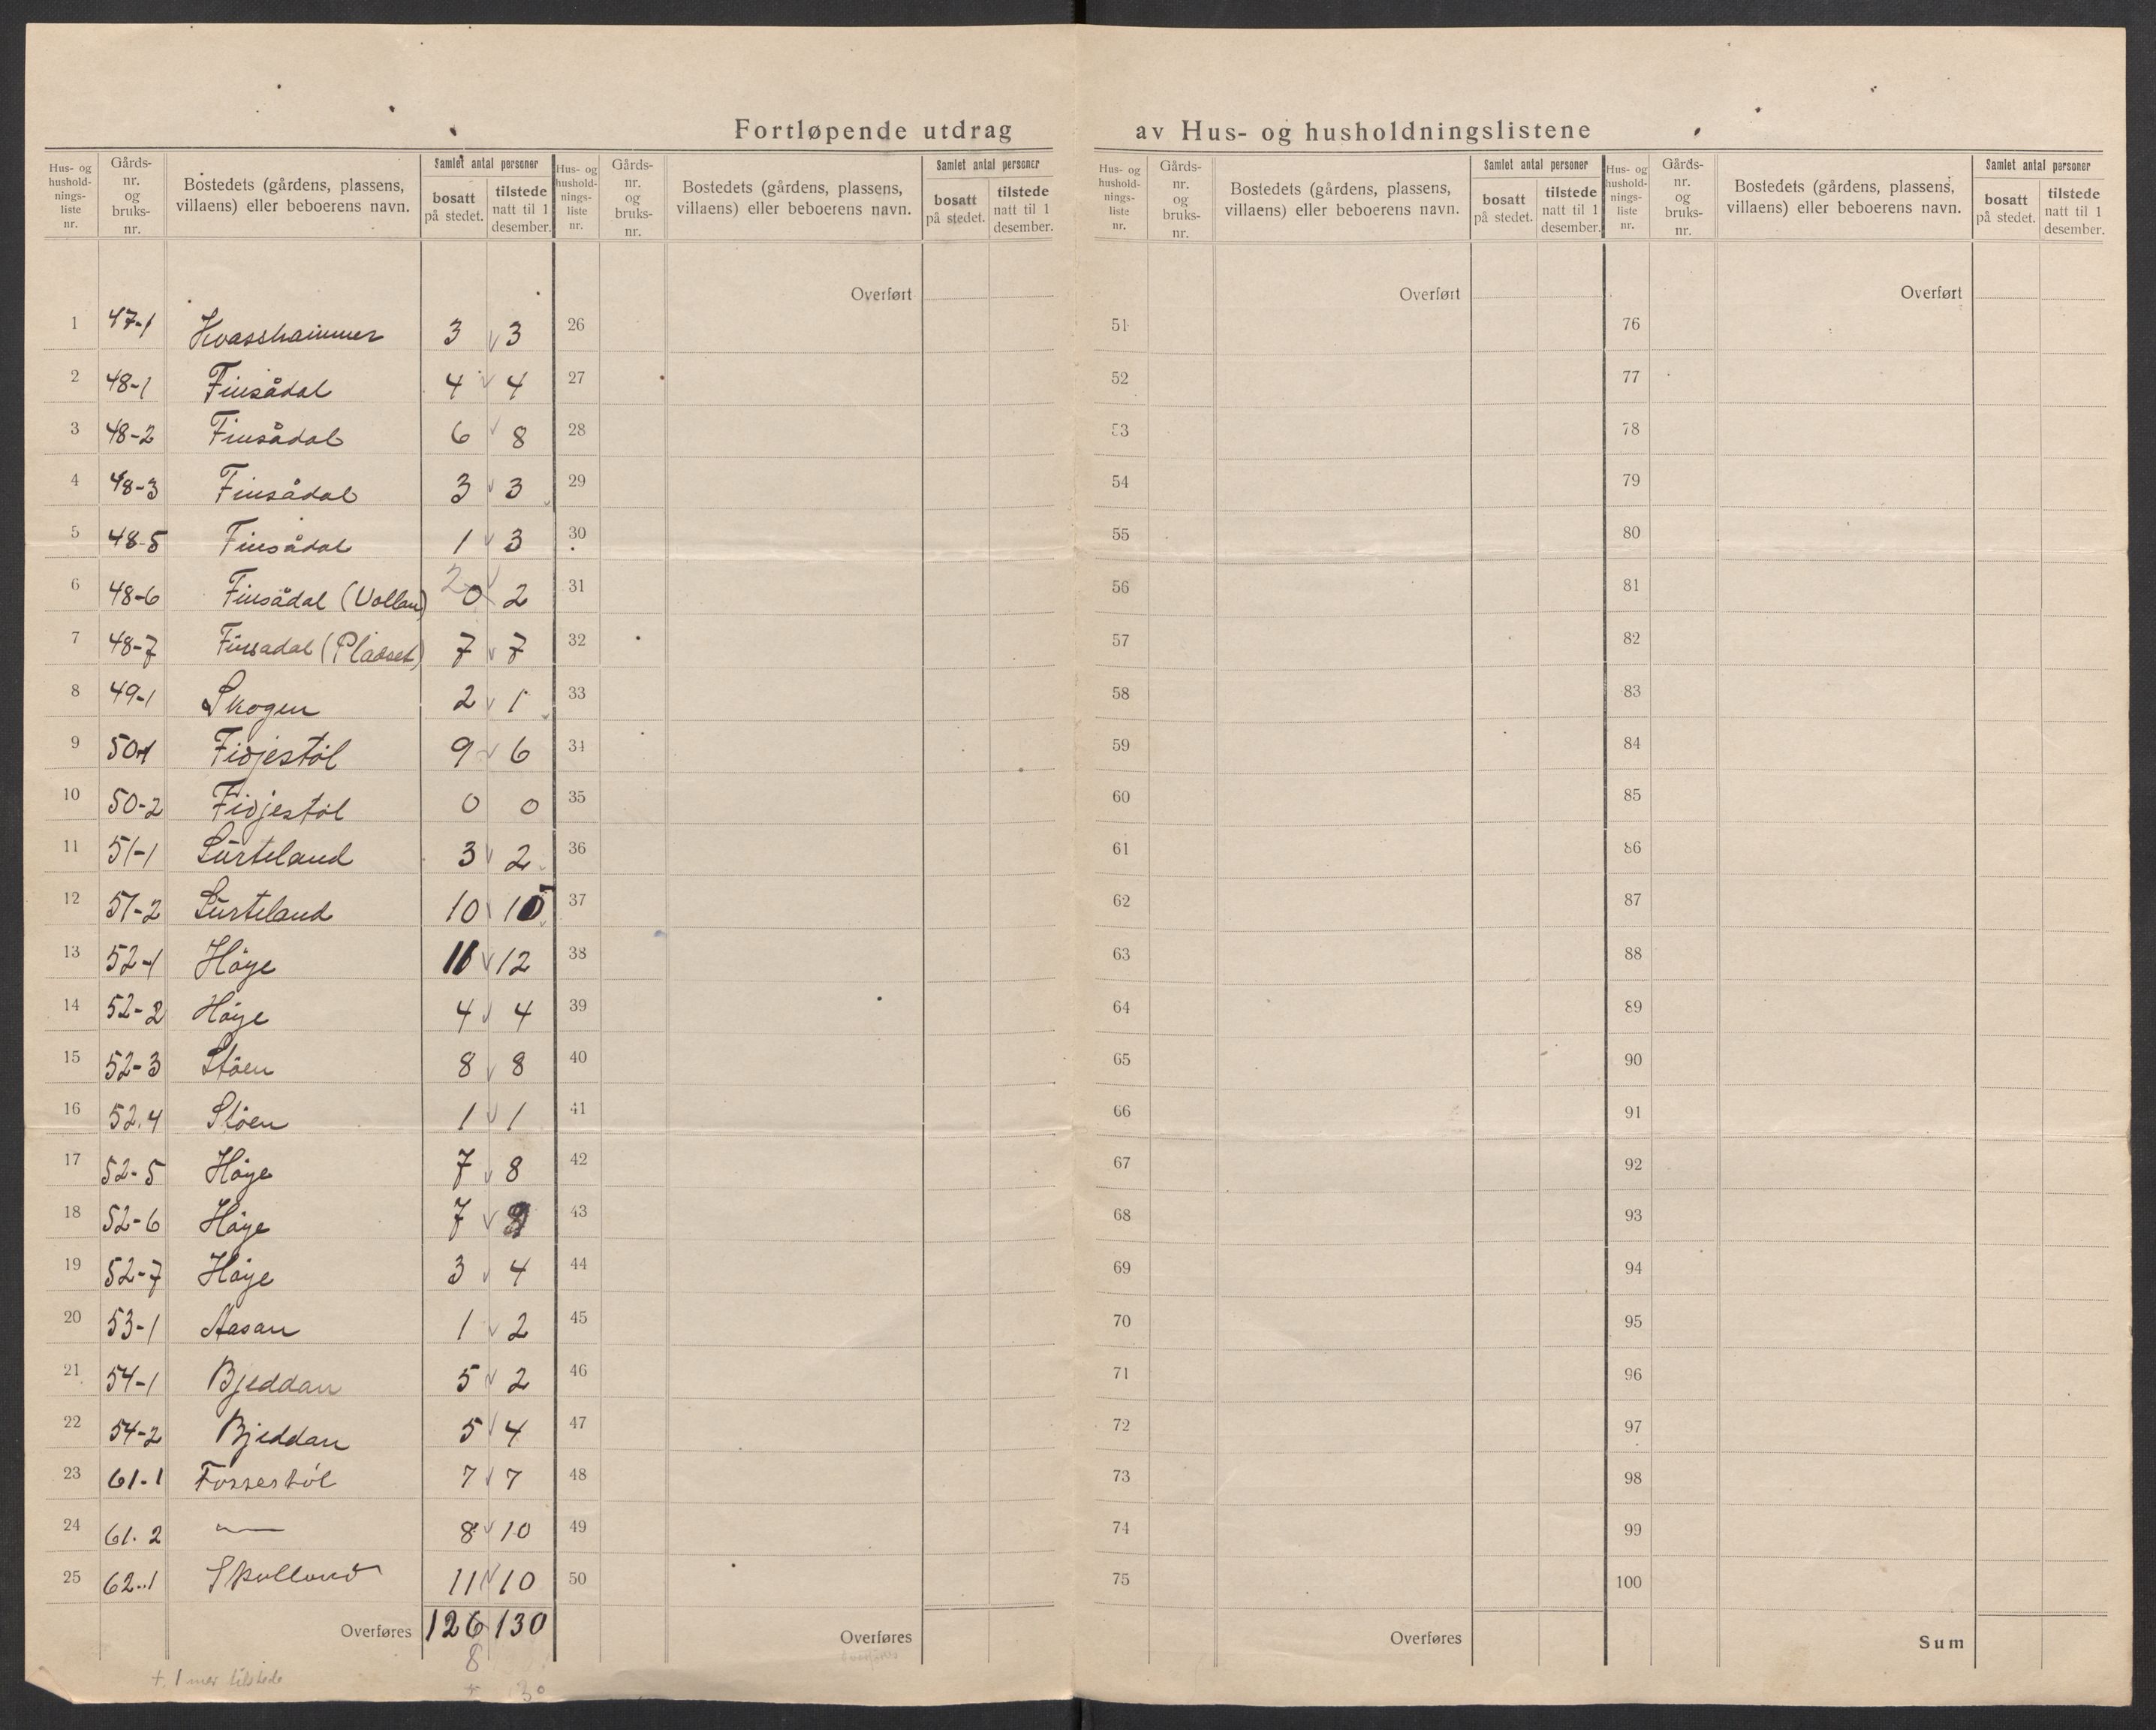 Fortløpende utdrag av Hus- og husholdningslistene
Hus- og husholdnings-liste nr. | Gårds-nr. og bruks-nr. | Bostedets (gårdens, plassens, villaens) eller beboerens navn. | Samlet antal personer | bosatt på stedet. | tilstede natt til 1 desember.
Hus- og husholdnings-liste nr. | Gårds-nr. og bruks-nr. | Bostedets (gårdens, plassens, villaens) eller beboerens navn. | Samlet antal personer | bosatt på stedet. | tilstede natt til 1 desember.
Hus- og husholdnings-liste nr. | Gårds-nr. og bruks-nr. | Bostedets (gårdens, plassens, villaens) eller beboerens navn. | Samlet antal personer | bosatt på stedet. | tilstede natt til 1 desember.
Hus- og husholdnings-liste nr. | Gårds-nr. og bruks-nr. | Bostedets (gårdens, plassens, villaens) eller beboerens navn. | Samlet antal personer | bosatt på stedet. | tilstede natt til 1 desember.
Overført Overført Overført
1 47-1 Kvasshammer 3 v 3 26 51 76
2 48-1 Finsådal 4 v 4 27 52 77
3 48-2 Finsådal 6 v 8 28 53 78
4 48-3 Finsådal 3 v 3 29 54 79
5 48-5 Finsådal 1 v 3 30 55 80
6 48-6 Finsådal (Vollan) 2 0 v 2 31 56 81
7 48-7 Finsadal (Pladset) 7 v 7 32 57 82
8 49-1 Skogen 2 v 1 33 58 83
9 50-1 Fidjestöl 9 v 6 34 59 84
10 50-2 Fidjestöl 0 0 35 60 85
11 51-1 Lürteland 3 v 2 36 61 86
12 51-2 Lürteland 10 v 10 37 62 87
13 52-1 Höye 11 v 12 38 63 88
14 52-2 Höye 4 v 4 39 64 89
15 52-3 Stöen 8 v 8 40 65 90
16 52.4 Stöen 1 v 1 41 66 91
17 52-5 Höye 7 v 8 42 67 92
18 52-6 Höye 7 v 43 68 93
19 52-7 Höye 3 v 4 44 69 94
20 53-1 Aasan 1 v 2 45 70 95
21 54-1 Bjeddan 5 v 2 46 71 96
22 54-2 Bjeddan 5 v 4 47 72 97
23 61-1 Fossestöl 7 v 7 48 73 98
24 61.2 — 8 v 10 49 74 99
25 62-1 Skolland 11 v 10 50 75 100
Overføres 126 130 Overføres Overføres Sum
8
+ 1 mer tilstede
30